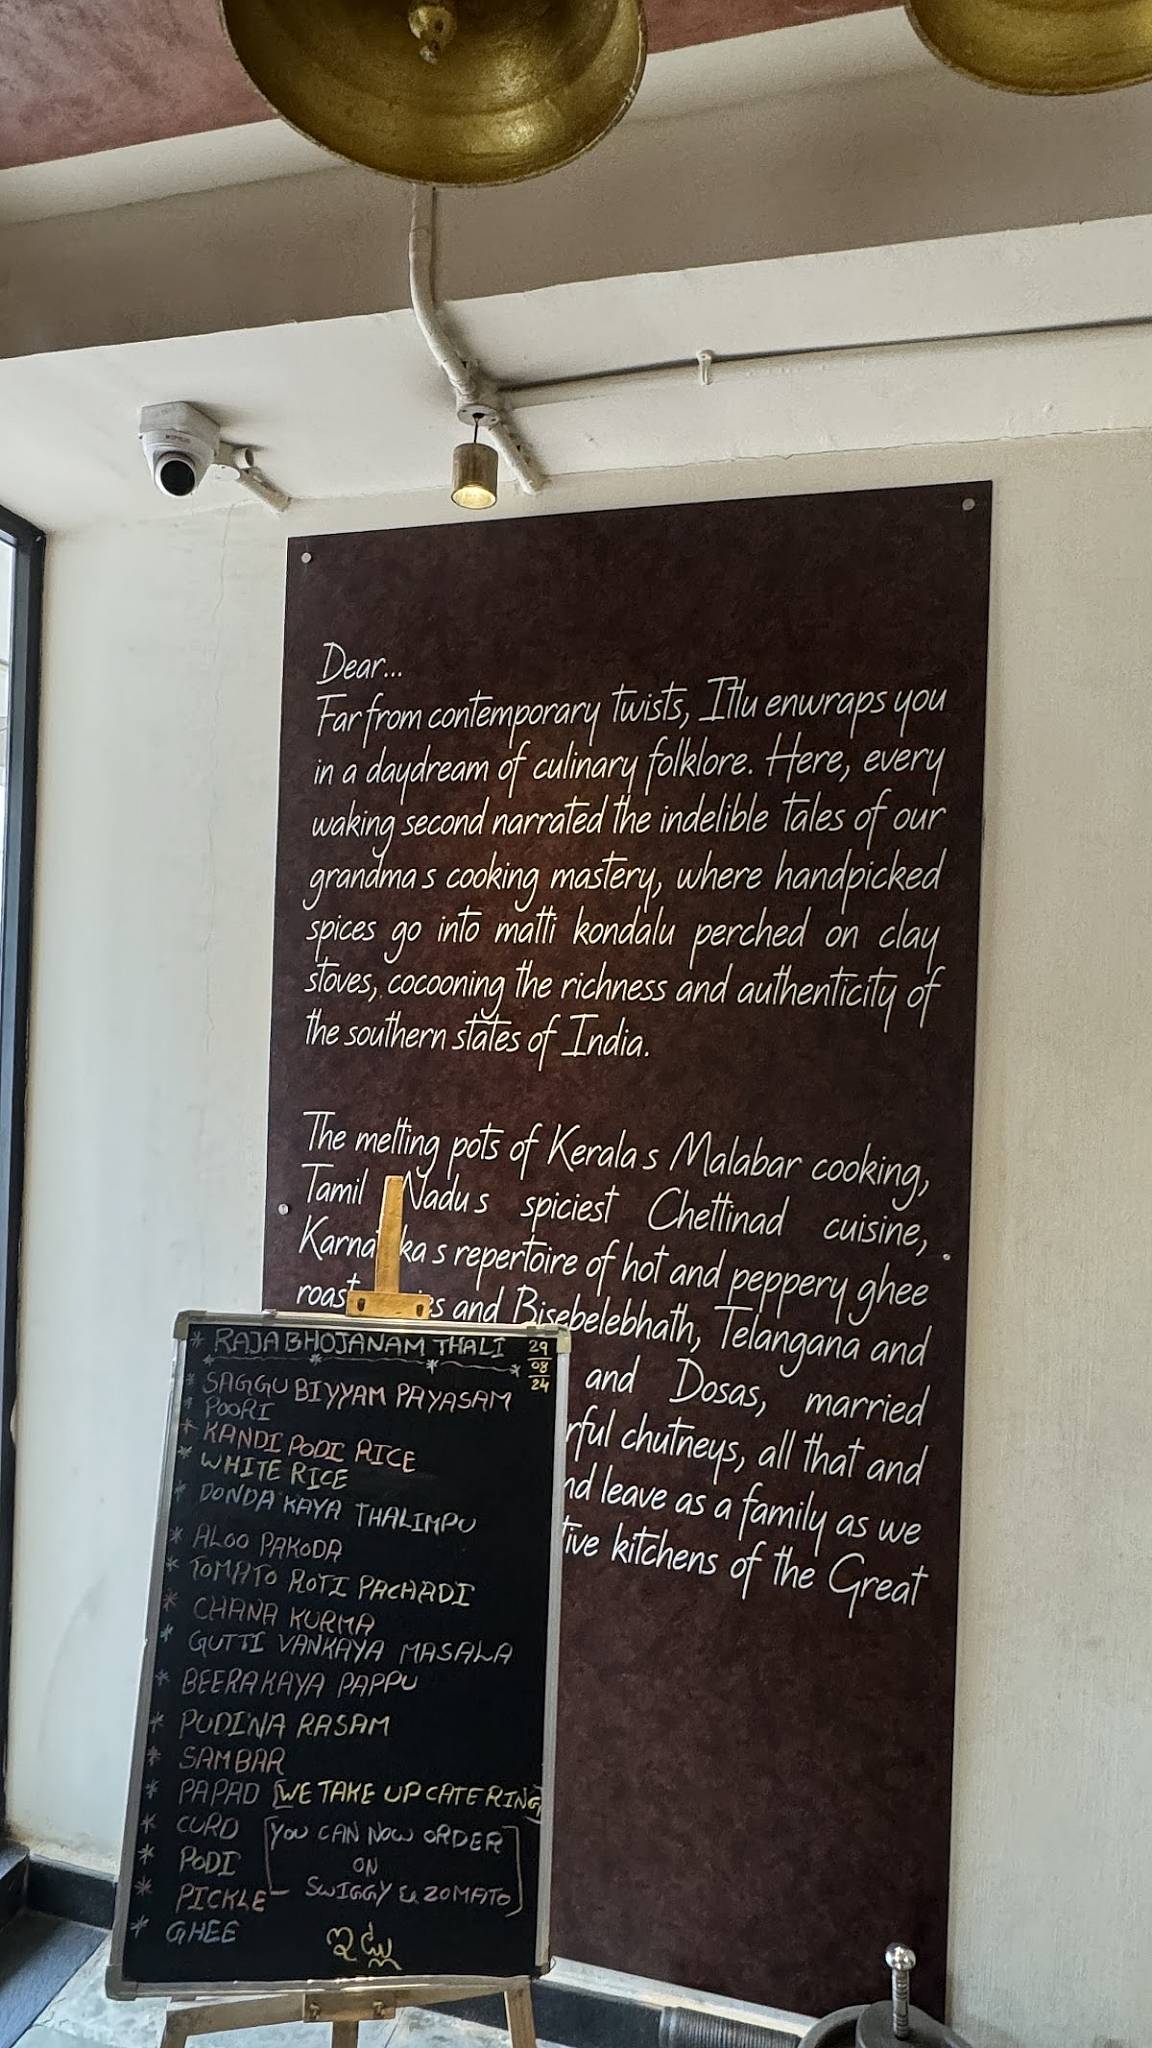 Dear...
Far from contemporary twists, Ittlu enwraps you
in a daydream of culinary folklore. Here, every
waking second narrated the indelible tales of our
grandma s cooking mastery, where handpicked
spices go into matti kondalu perched on clay
stoves, cocooning the richness and authenticity of
the southern states of India.
The melting pots of Kerala s Malabar cooking,
Tamil Nadu s spiciest Chettinad cuisine,
Karna ka s repertoire of hot and peppery ghee
roast and Bisebelebhath, Telangana and
and Dosas, married
chutneys, all that and
leave as a family as we
kitchens of the Great
* RAJA BHOJANAM THALI
29
08
24
* SAGGU BIYYAM PAYASAM
* POORI
* KANDI PODI RICE
* WHITE RICE
* DONDA KAYA THALIMPU
* ALOO PAKODA
* TOMATO ROTI PACHADI
* CHANA KURMA
* GUTTI VANKAYA MASALA
* BEERAKAYA PAPPU
* PUDINA RASAM
* SAMBAR
* PAPAD [WE TAKE UP CATERING]
* CURD [YOU CAN NOW ORDER
* PODI ON
* PICKLE – SWIGGY & ZOMATO]
* GHEE
ఇట్లు